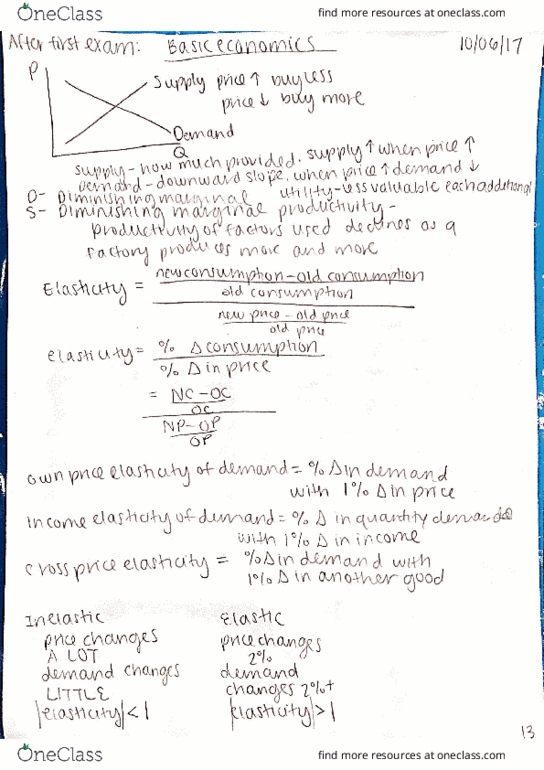 OneClass
find more resources at oneclass.com
After first exam: Basic economics 10/06/17
P
Supply price ↑ buy less
price ↓ buy more
Demand
Q
supply - how much provided. supply ↑ when price ↑
Demand - downward slope. when price ↑ demand ↓
D- Diminishing marginal utility - less valuable each additional
S- Diminishing marginal productivity -
productivity of factors used declines as a
factory produces more and more
Elasticity = new consumption - old consumption
old consumption
new price - old price
old price
elasticity = % Δ consumption
% Δ in price
= NC - OC
OC
NP - OP
OP
own price elasticity of demand = % Δ in demand
with 1% Δ in price
income elasticity of demand = % Δ in quantity demanded
with 1% Δ in income
cross price elasticity = % Δ in demand with
1% Δ in another good
Inelastic Elastic
price changes price changes
A LOT 2%
demand changes demand
LITTLE changes 2%+
|elasticity| < 1 |elasticity| > 1
13
OneClass
find more resources at oneclass.com